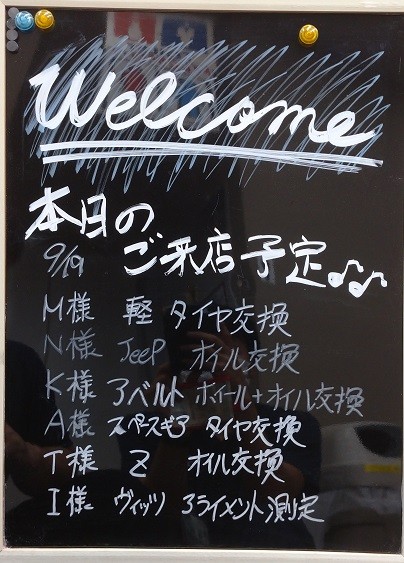 Welcome
本日の
9/19 ご来店予定♪♪
M様 軽 タイヤ交換
N様 Jeep オイル交換
K様 アバルト ホイール+オイル交換
A様 スペースギア タイヤ交換
T様 Z オイル交換
I様 ヴィッツ アライメント測定